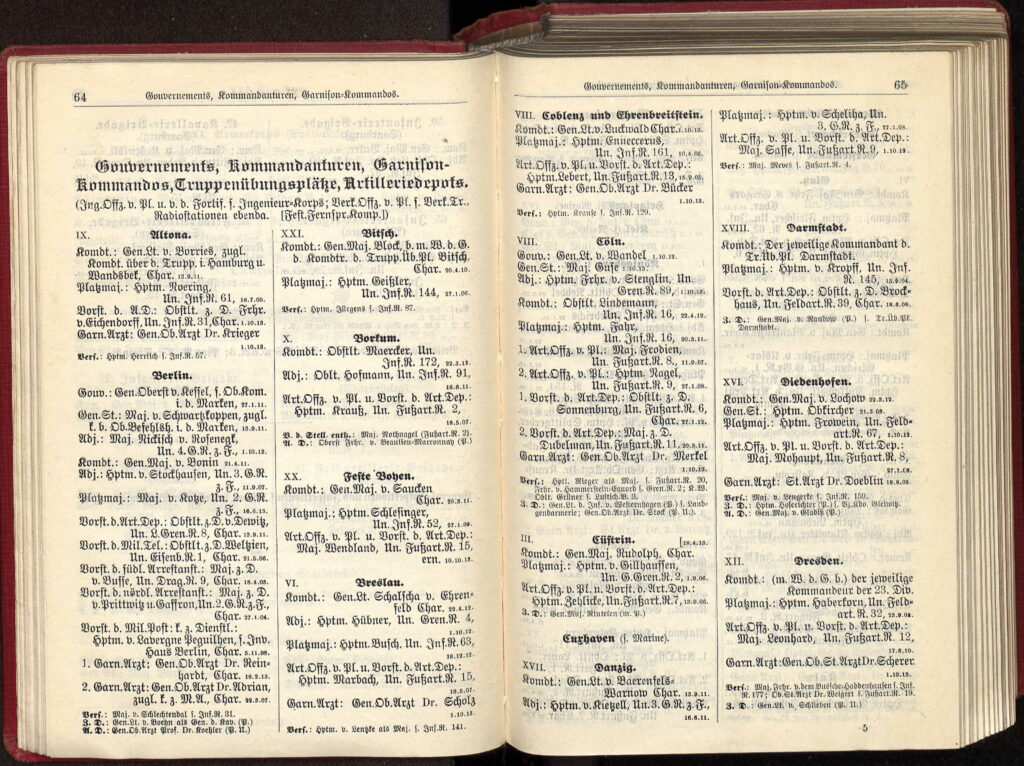 64
Gouvernements, Kommandanturen, Garnison-Kommandos.
Gouvernements, Kommandanturen, Garnison-
Kommandos, Truppenübungsplätze, Artilleriedepots.
(Ing.Offz. v. Pl. u. v. d. Fortif. s. Ingenieur-Korps; Verk.Offz. v. Pl. s. Verk.Tr.,
Radiostationen ebenda. [Fest.Fernspr.Komp.])
IX. Altona.
Komdt.: Gen.Lt. v. Borries, zugl.
Komdt. über d. Trupp. i. Hamburg u.
Wandsbek, Char. 13.9.11.
Platzmaj.: Hptm. Noering,
Un. Inf.R. 61, 18.7.05.
Vorst. d. A.D.: Obstlt. z. D. Frhr.
v. Eichendorff, Un. Inf.R. 31, Char. 1.10.13.
Garn.Arzt: Gen.Ob.Arzt Dr. Krieger
1.10.13.
Vers.: Hptm. Herrlich s. Inf.R. 57.
Berlin.
Gouv.: Gen.Oberst v. Kessel, s. Ob.Kom.
i. d. Marken, 27.1.11.
Gen.St.: Maj. v. Schwartzkoppen, zugl.
k. b. Ob.Befehlsh. i. d. Marken, 13.9.11.
Adj.: Maj. Rickisch v. Rosenegk,
Un. 4. G.R. z. F., 1.10.12.
Komdt.: Gen.Maj. v. Bonin 21.4.11.
Adj.: Hptm. v. Stockhausen, Un. 3. G.R.
z. F., 11.9.07.
Platzmaj.: Maj. v. Kotze, Un. 2. G.R.
z. F., 16.6.13.
Vorst. d. Art.Dep.: Obstlt. z. D. v. Dewitz,
Un. L.Gren.R. 8, Char. 13.9.11.
Vorst. d. Mil.Tel.: Obstlt. z. D. Weltzien,
Un. Eisenb.R. 1, Char. 21.5.06.
Vorst. d. südl. Arrestanst.: Maj. z. D.
v. Busse, Un. Drag.R. 9, Char. 18.4.03.
Vorst. d. nördl. Arrestanst.: Maj. z. D.
v. Prittwitz u. Gaffron, Un. 2. G.R. z. F.,
Char. 27.1.04.
Vorst. d. Mil.Post: k. z. Dienstl.:
Hptm. v. Lavergne Peguilhen, s. Inv.
Haus Berlin, Char. 5.11.08.
1. Garn.Arzt: Gen.Ob.Arzt Dr. Rein-
hardt, Char. 18.2.13.
2. Garn.Arzt: Gen.Ob.Arzt Dr. Adrian,
zugl. k. z. M.A., Char. 22.3.07.
Vers.: Maj. v. Schlechtendal s. Inf.R. 31.
Z. D.: Gen.Lt. v. Boehn als Gen. d. Kav. (P.)
A. D.: Gen.Ob.Arzt Prof. Dr. Koehler (P. U.)
XXI. Bitsch.
Komdt.: Gen.Maj. Block, b. m. W. d. G.
d. Komdtr. d. Trupp.Üb.Pl. Bitsch,
Char. 20.4.10.
Platzmaj.: Hptm. Geißler,
Un. Inf.R. 144, 27.1.06.
Vers.: Hptm. Jürgens s. Inf.R. 87.
X. Borkum.
Komdt.: Obstlt. Maercker, Un.
Inf.R. 172, 22.3.12.
Adj.: Oblt. Hofmann, Un. Inf.R. 91,
16.6.11.
Art.Offz. v. Pl. u. Vorst. d. Art.Dep.:
Hptm. Krautz, Un. Fußart.R. 2,
18.5.07.
V. d. Stell. enth.: Maj. Rothnagel (Fußart.R. 2).
A. D.: Oberst Frhr. v. Beaulieu-Marconnay (P.)
XX. Feste Boyen.
Komdt.: Gen.Maj. v. Saucken
Char. 20.3.11.
Platzmaj.: Hptm. Schlesinger,
Un. Inf.R. 52, 27.1.09.
Art.Offz. v. Pl. u. Vorst. d. Art.Dep.:
Maj. Wendland, Un. Fußart.R. 15,
ern. 10.10.13.
VI. Breslau.
Komdt.: Gen.Lt. Schalscha v. Ehren-
feld Char. 22.4.12.
Adj.: Hptm. Hübner, Un. Gren.R. 4,
1.10.12.
Platzmaj.: Hptm. Busch, Un. Inf.R. 63,
18.12.12.
Art.Offz. v. Pl. u. Vorst. d. Art.Dep.:
Hptm. Marbach, Un. Fußart.R. 15,
18.5.07.
Garn.Arzt: Gen.Ob.Arzt Dr. Scholz
1.10.13.
Vers.: Hptm. v. Lentzke als Maj. s. Inf.R. 141.
Gouvernements, Kommandanturen, Garnison-Kommandos.
65
VIII. Coblenz und Ehrenbreitstein.
Komdt.: Gen.Lt. v. Luckwald Char. 1.10.12.
Platzmaj.: Hptm. Enneccerus,
Un. Inf.R. 161, 10.4.06.
Art.Offz. v. Pl. u. Vorst. d. Art.Dep.:
Hptm. Lebert, Un. Fußart.R. 13, 15.9.05.
Garn.Arzt: Gen.Ob.Arzt Dr. Bücker
1.10.13.
Vers.: Hptm. Krause s. Inf.R. 129.
VIII. Cöln.
Gouv.: Gen.Lt. v. Wandel 1.10.12.
Gen.St.: Maj. Güse 1.10.12.
Adj.: Hptm. Frhr. v. Stenglin, Un.
Gren.R. 89, 1.10.08.
Komdt.: Obstlt. Lindemann,
Un. Inf.R. 16, 22.4.12.
Platzmaj.: Hptm. Fahr,
Un. Inf.R. 16, 20.3.11.
1. Art.Offz. v. Pl.: Maj. Frodien,
Un. Fußart.R. 8, 11.9.07.
2. Art.Offz. v. Pl.: Hptm. Nagel,
Un. Fußart.R. 9, 27.1.08.
1. Vorst. d. Art.Dep.: Obstlt. z. D.
Sonnenburg, Un. Fußart.R. 6,
Char. 27.1.12.
2. Vorst. d. Art.Dep.: Maj. z. D.
Dubelman, Un. Fußart.R. 11, 20.3.12.
Garn.Arzt: Gen.Ob.Arzt Dr. Merkel
1.10.13.
Vers.: Hptl. Rieger als Maj. s. Fußart.R. 20,
Frhr. v. Hammerstein-Gesmold s. Gren.R. 2; k. W.
Oblt. Grüner s. Luftsch.B. 3.
Z. D.: Gen.Lt. d. Inf. v. Westernhagen (P.) s. Land-
gendarmerie; Gen.Ob.Arzt Dr. Stock (P. U.).
III. Cüstrin. [18.4.13.
Komdt.: Gen.Maj. Rudolph, Char.
Platzmaj.: Hptm. v. Gillhaussen,
Un. G.Gren.R. 2, 1.9.06.
Art.Offz. v. Pl. u. Vorst. d. Art.Dep.:
Hptm. Zehlicke, Un. Fußart.R. 7, 13.9.06.
Z. D.: Gen.Maj. Rintelen (m. P.)
Cuxhaven (s. Marine).
XVII. Danzig.
Komdt.: Gen.Lt. v. Baerenfels-
Warnow Char. 13.9.11.
Adj.: Hptm. v. Kietzell, Un. 3. G.R. z. F.,
16.6.11.
Platzmaj.: Hptm. v. Scheliha, Un.
3. G.R. z. F., 27.1.08.
Art.Offz. v. Pl. u. Vorst. d. Art.Dep.:
Maj. Sasse, Un. Fußart.R. 9, 1.10.12.
Vers.: Maj. Mewes s. Fußart.R. 4.
XVIII. Darmstadt.
Komdt.: Der jeweilige Kommandant d.
Tr.Üb.Pl. Darmstadt.
Platzmaj.: Hptm. v. Kropff, Un. Inf.
R. 145, 15.9.04.
Vorst. d. Art.Dep.: Obstlt. z. D. Brock-
haus, Un. Feldart.R. 39, Char. 18.8.08.
Z. D.: Gen.Maj. v. Randow (P.) s. Tr.Üb.Pl.
Darmstadt.
XVI. Diedenhofen.
Komdt.: Gen.Maj. v. Lochow 22.3.12.
Gen.St.: Hptm. Obkircher 21.5.08.
Platzmaj.: Hptm. Frowein, Un. Feld-
art.R. 67, 1.10.12.
Art.Offz. v. Pl. u. Vorst. d. Art.Dep.:
Maj. Mohaupt, Un. Fußart.R. 8,
27.1.08.
Garn.Arzt: St.Arzt Dr. Doeblin 18.8.05.
Vers.: Maj. v. Lengerke s. Inf.R. 150.
A. D.: Gen.Maj. v. Gladiß (P.)
XII. Dresden.
Komdt.: (m. W. d. G. b.) der jeweilige
Kommandeur der 23. Div.
Platzmaj.: Hptm. Haberkorn, Un. Feld-
art.R. 32, 18.8.04.
Art.Offz. v. Pl. u. Vorst. d. Art.Dep.:
Maj. Leonhard, Un. Fußart.R. 12,
17.6.10.
Garn.Arzt: Gen.Ob.St.Arzt Dr. Scherer
1.10.13.
Vers.: Maj. Frhr. v. dem Bussche-Haddenhausen s. Inf.
R. 177; Ob.St.Arzt Dr. Weigert s. Fußart.R. 19.
Z. D.: Gen.Lt. v. Schlieben (P. U.)
5